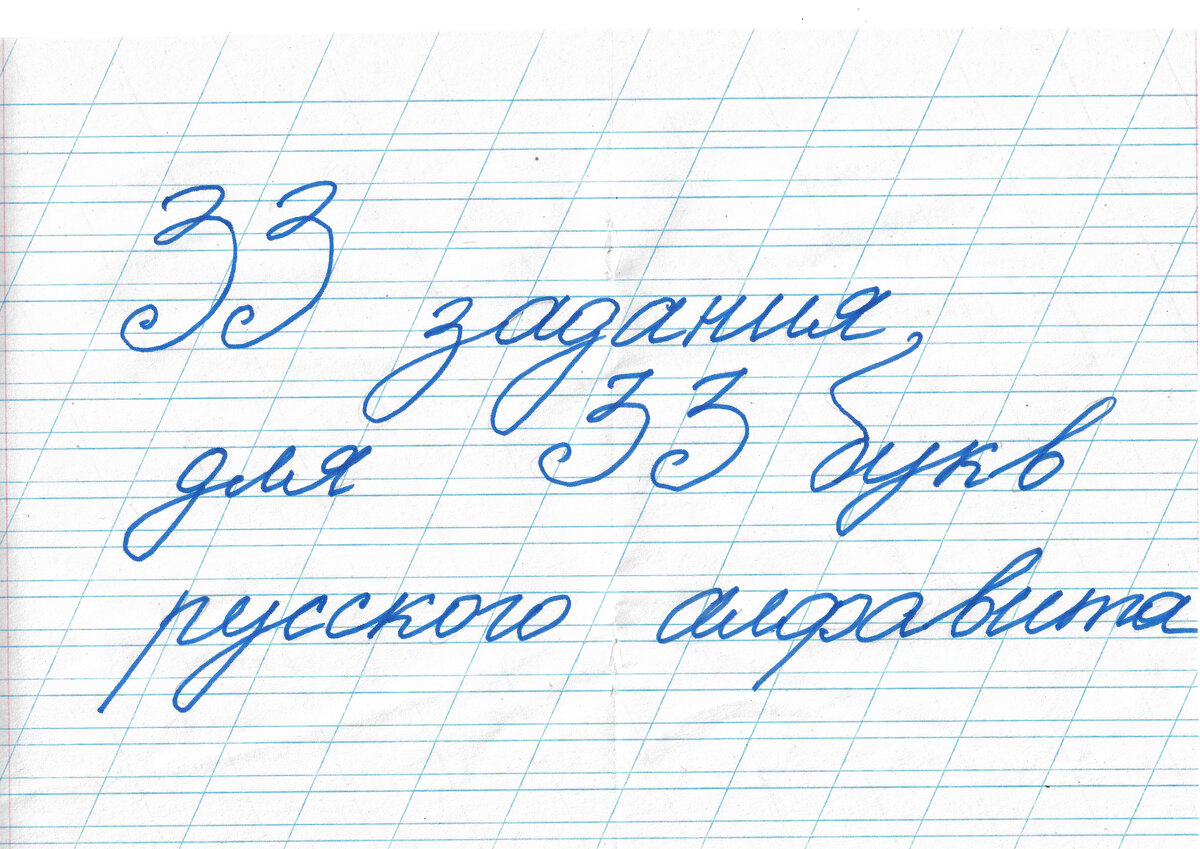 33 задания
для 33 букв
русского алфавита